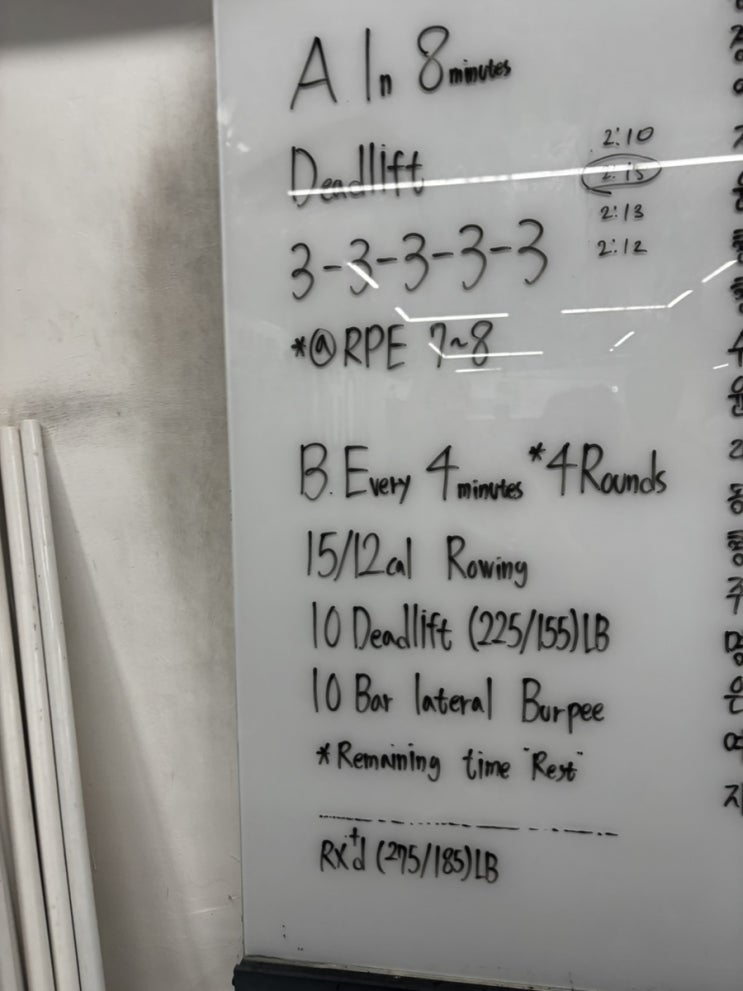 A In 8 minutes
Deadlift
3-3-3-3-3
*@RPE 7~8
2:10
2:15
2:13
2:12
B. Every 4 minutes *4 Rounds
15/12cal Rowing
10 Deadlift (225/155)LB
10 Bar lateral Burpee
*Remaining time "Rest"
Rx+'d (275/185)LB